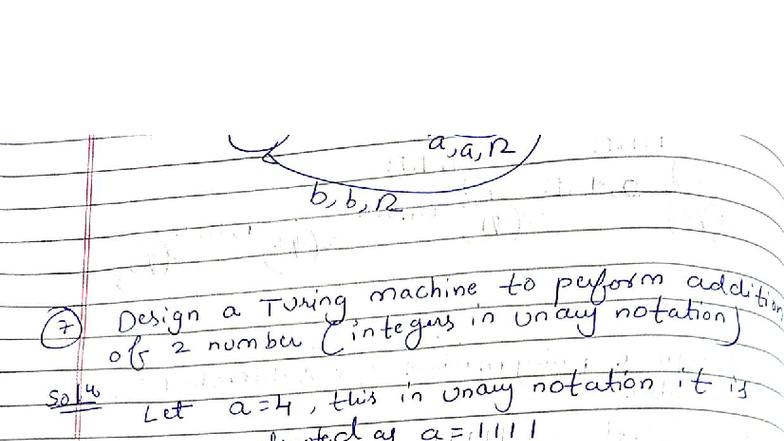 a,a,R
b,b,R
7 Design a Turing machine to perform addition
of 2 number (integers in unary notation)
Solⁿ Let a=4, this in unary notation it is
as a=1111